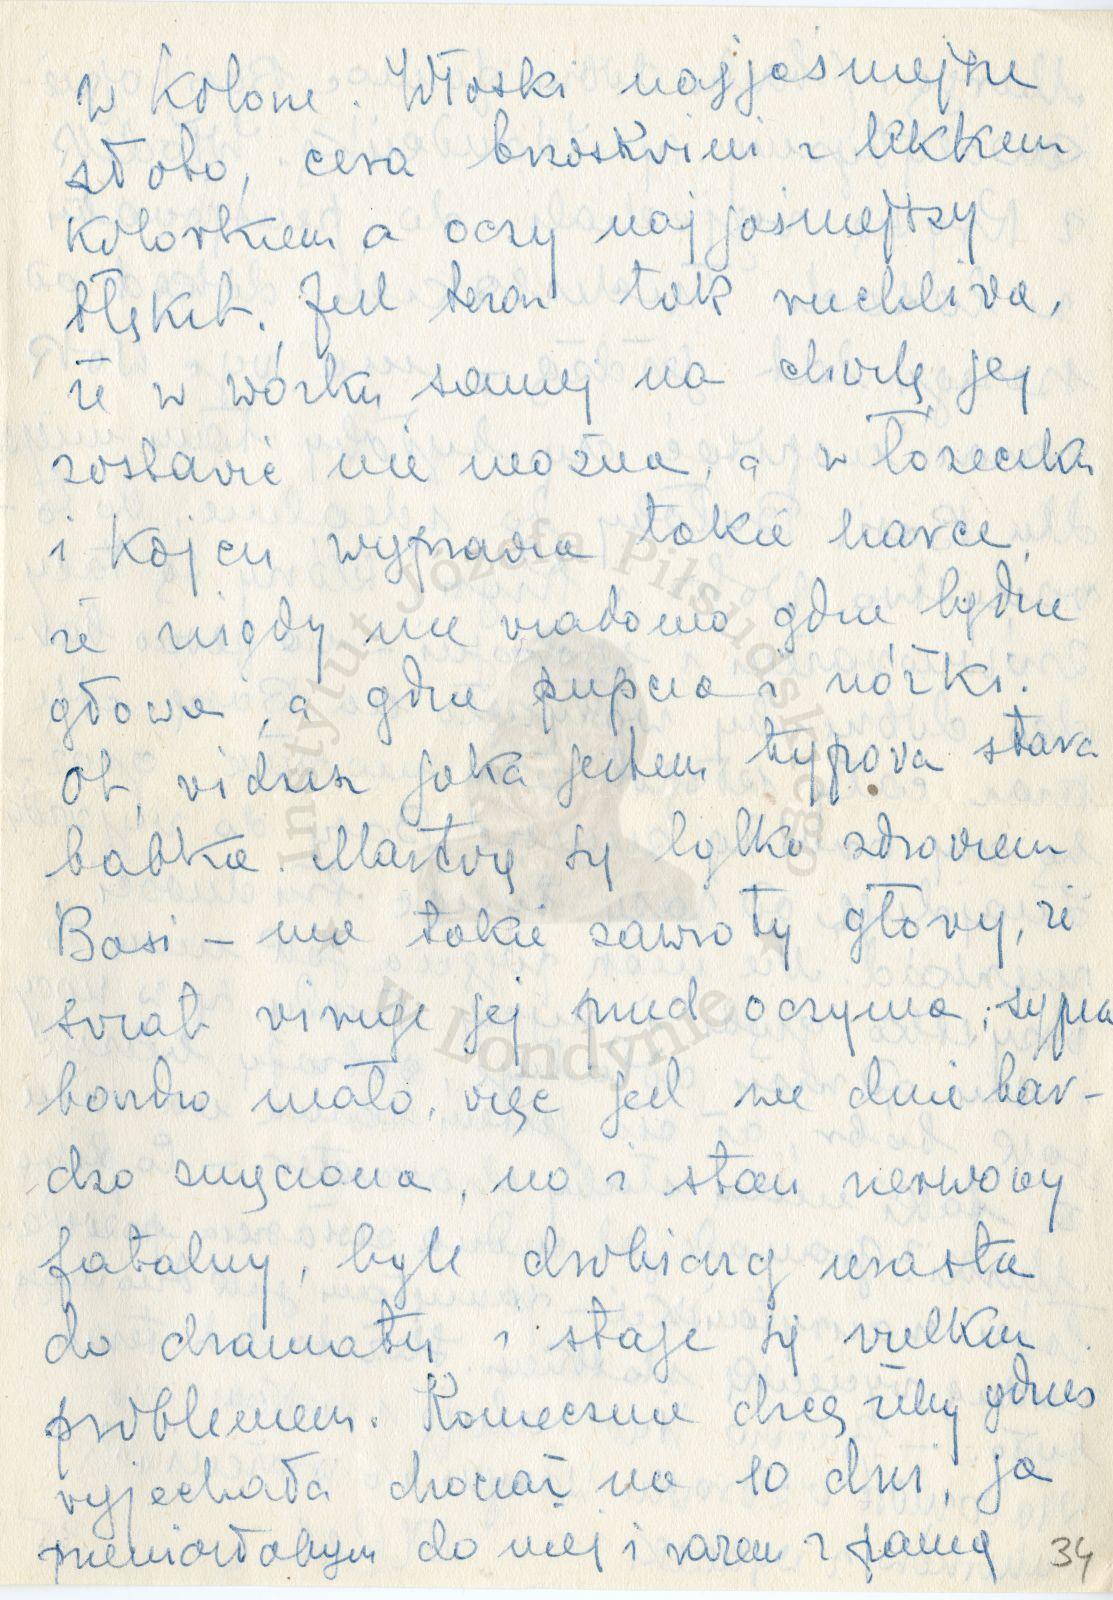 w kolorze. Włoski najjaśniejsze
złoto, cera brzoskwini z lekkim
kolorkiem a oczy najjaśniejszy
błękit. Jest teraz tak ruchliwa,
że w wózku samej na chwilę jej
zostawić nie można, a w łóżeczku
i kojcu wyprawia takie harce,
że nigdy nie wiadomo gdzie będzie
głowa, a gdzie pupcia i nóżki.
Ot, widzisz jaka jestem typowa stara
babka. Martwię się tylko zdrowiem
Basi – ma takie zawroty głowy, że
świat wiruje jej przed oczyma, sypia
bardzo mało, więc jest we dnie bar-
dzo zmęczona, no i stan nerwowy
fatalny, byle drobiazg urasta
do dramatu i staje się wielkim
problemem. Koniecznie chcę żeby gdzieś
wyjechała chociaż na 10 dni, ja
przeniosłabym do niej i razem z panią
34
Instytut Józefa Piłsudskiego
w Londynie